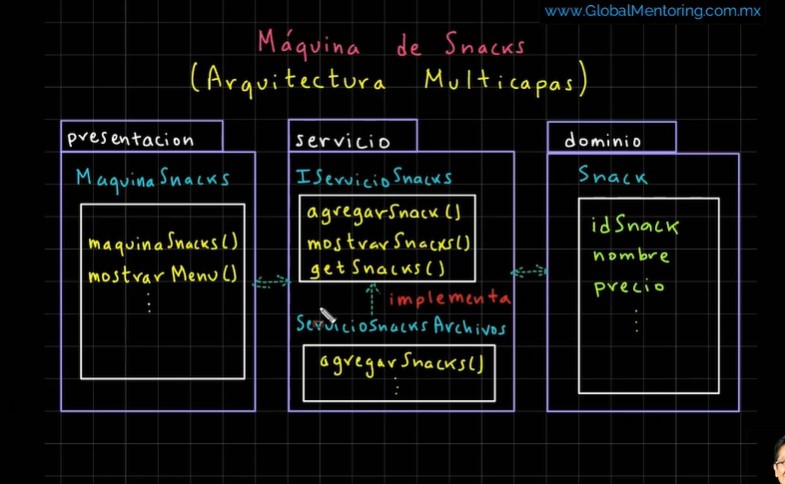 www.GlobalMentoring.com.mx
Máquina de Snacks
(Arquitectura Multicapas)
presentacion
MaquinaSnacks
maquinaSnacks()
mostrarMenu()
⋮
servicio
IServicioSnacks
agregarSnack()
mostrarSnacks()
getSnacks()
implementa
ServicioSnacksArchivos
agregarSnacks()
⋮
dominio
Snack
idSnack
nombre
precio
⋮